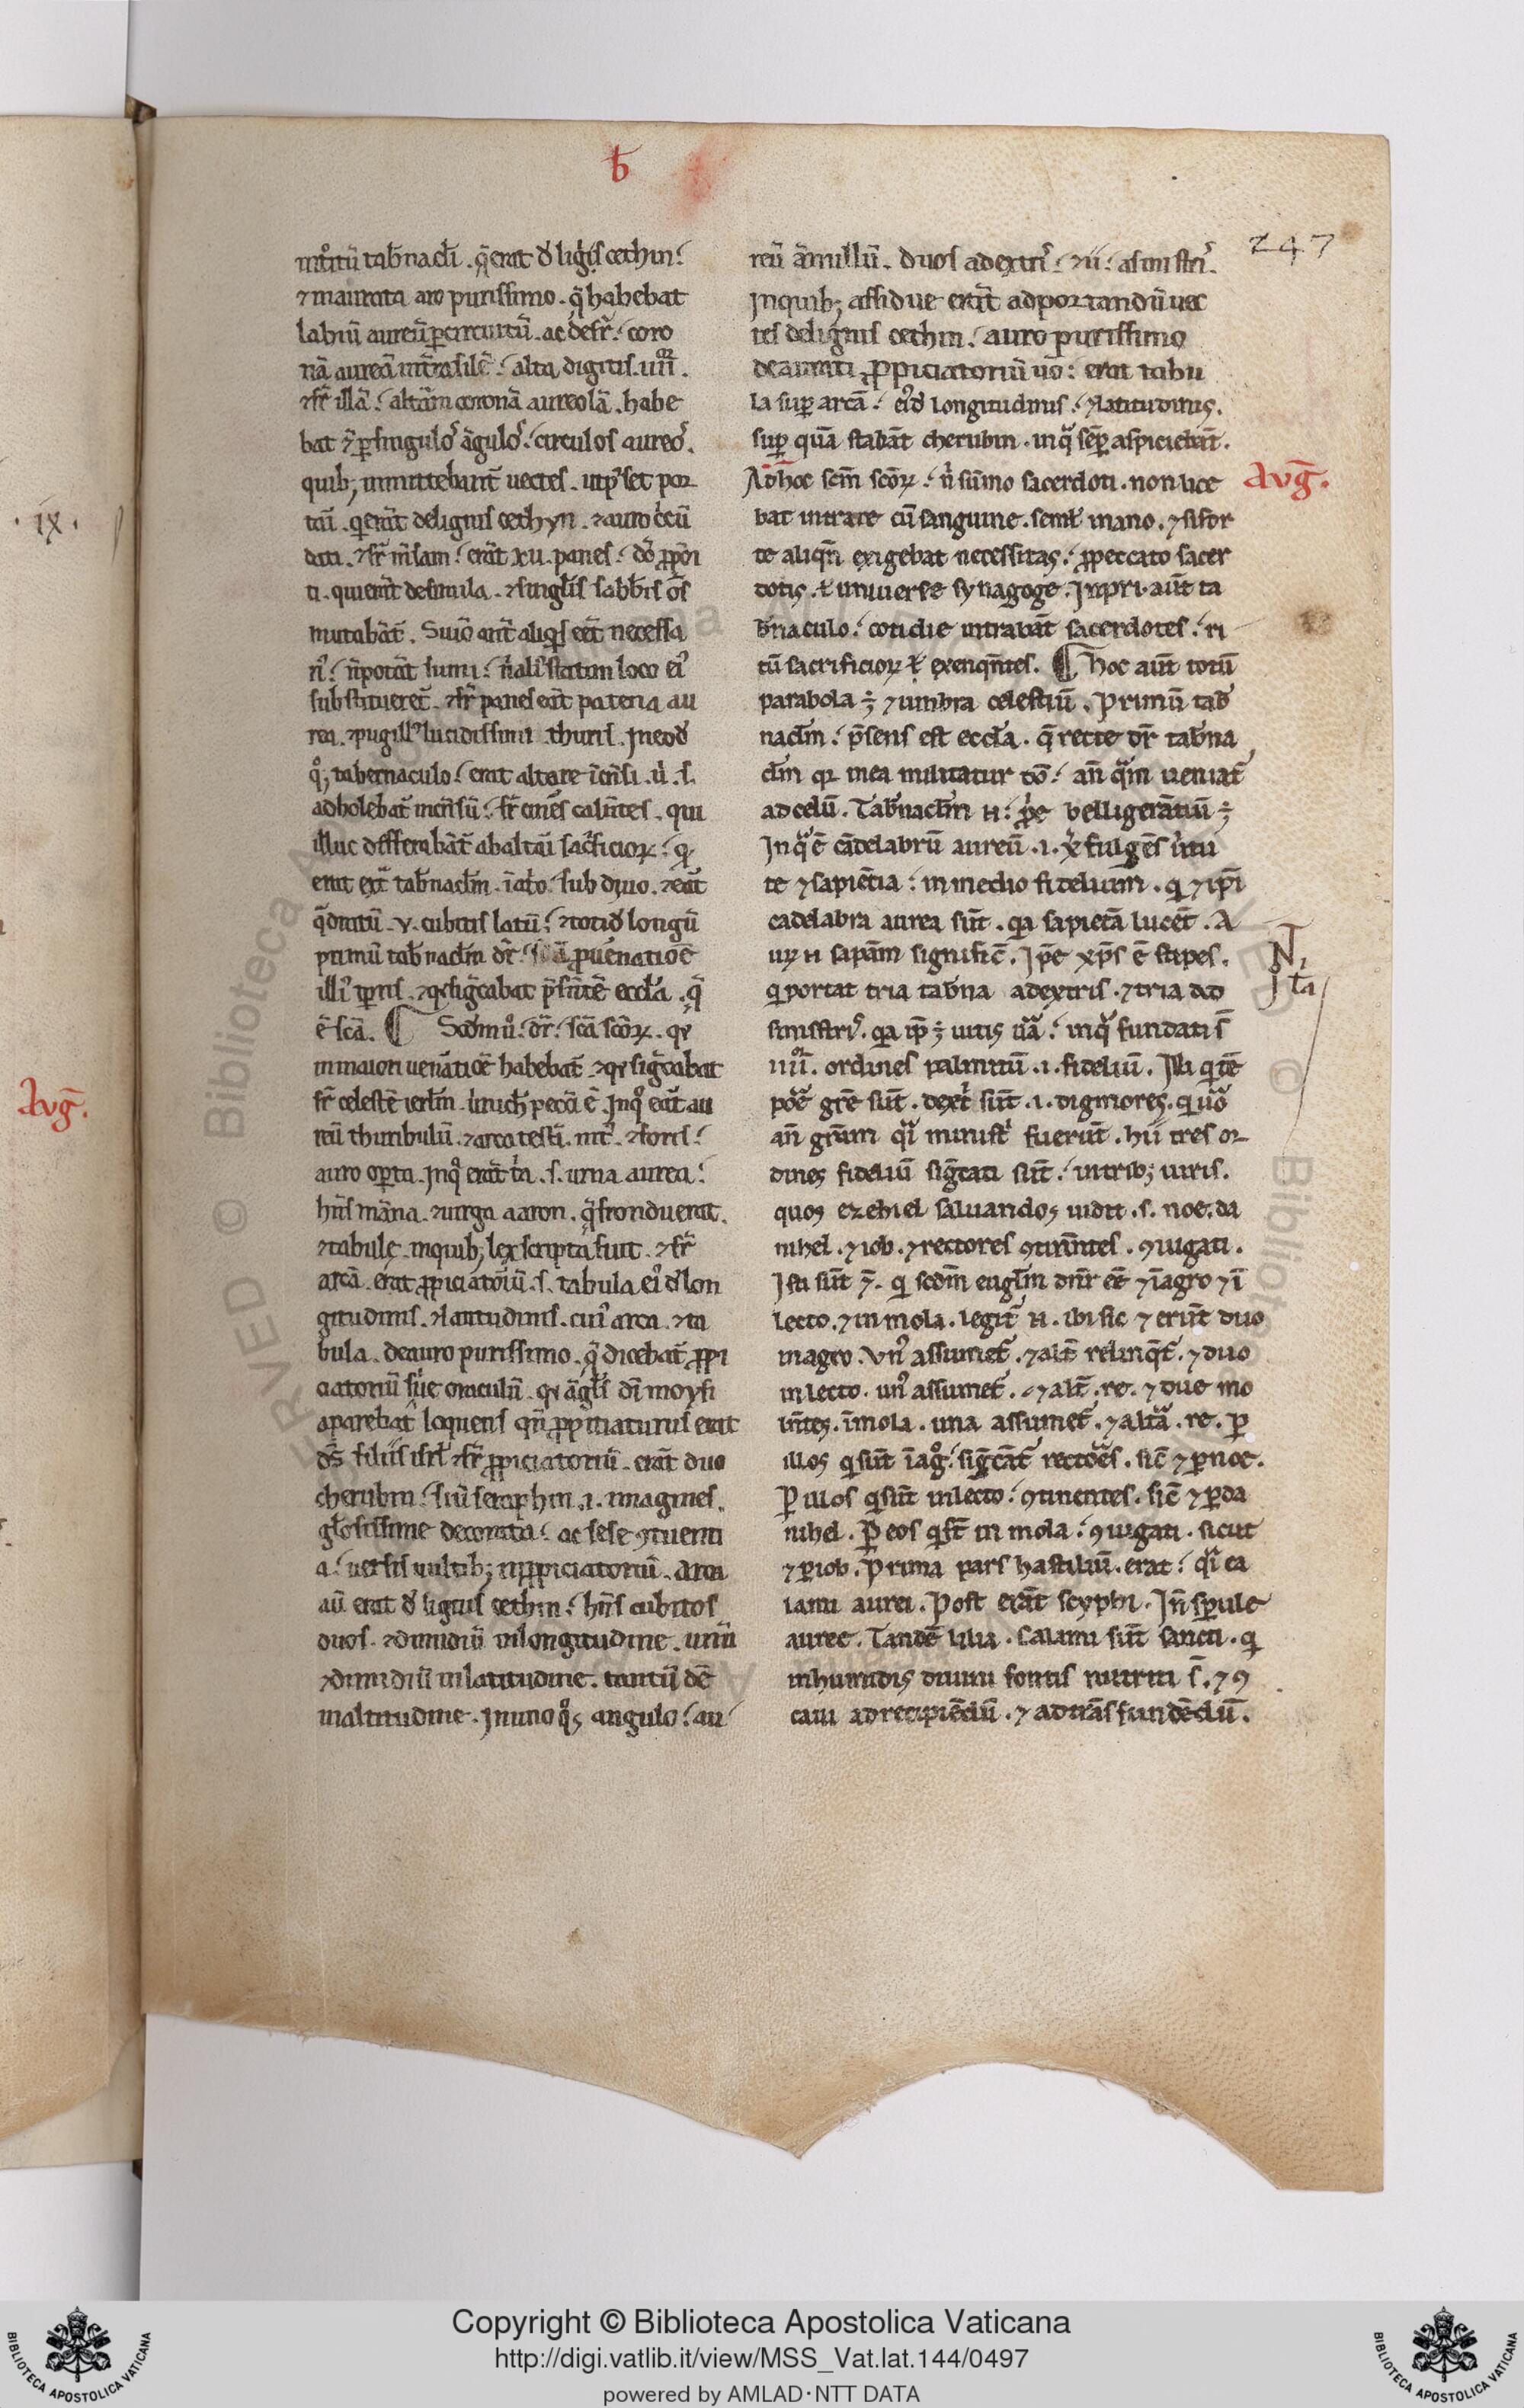 b
247
introitu tab̄nacli . q̄ erat d̓ lignis cethin
⁊ maurata auro purissimo . q̄ habebat
labiū aureū ꝑ circuitū . ac desr̄ coro
nā aureā int̄rasilē alta digitis .iiii.
⁊ sr̄ illā altam coronā aureolā . habe
bat ⁊ ꝑ singulos āgulos circulos aureos.
quib; inmittebant̄ uectes . ut posset por
tari . q erāt de lignis cethyn . ⁊ auro
dati . ⁊ sr̄ m̄sam erāt xii panes
ti . qui erāt de simila . ⁊ singlis sabbis oēs
mutabāt̄ . Si uō ant̄ aliqs eēt necessa
substitueret̄ . ⁊ sr̄ panes erāt patena au
rea . ⁊ pugillꝰ lucidissimi thuris . In eod̓
qͦ; tabernaculo erat altare īcēsi . ū .s.
adholebat̄ incēsū sr̄ cineres calentes . qui
illuc defferebāt̄ ab altari sacͥficioꝝ q
erat ext̄ tab̄naclm . sub diuo . ⁊ erat
q̄dratū .v. cubitis latū ⁊ totid̓ longū
primū tab̄naclm dr̄ scā
illiꝰ tēporis . ⁊ qꝛ sig̓cabat p̄sentē ecclā . q̄
ē scā . ¶ Scdm ū dr̄ scā scōꝝ . qꝛ
in maiori uenātiōe habebat̄ . ⁊ qꝛ sig̓cabat
sr̄ celestē ierlm . In qͦ erat au
reū thuribulū . ⁊ arca testī . int̄ ⁊ foris
auro opta . In qͦ erāt .s. urna aurea
hn̄s māna . ⁊ uirga aaron . q̄ fronduerat.
⁊ tabule . in quib; lex scripta fuit . ⁊ sr̄
arcā erat ꝓpiciatoriū .s. tabula eiꝰd̓ lon
gitudinis . ⁊ latitudinis . cuiꝰ arca . ⁊ ta
bula . de auro purissimo . q̄ dicebat̄ ꝓpi
ciatoriū siue oraculū . qꝛ āgl̄s dn̄i moysi
aparebat loquens qn̄ ꝓpitiaturus erat
ds̄ filiis isrl ⁊ sr̄ ꝓpiciatoriū . erāt duo
cherubin siū seraphin .i. imagines.
gl̄osissime decorata ac sese ꝯtuenti
a uersis uultib; in ꝓpiciatoriū . Arca
aū erat d̓ lignis cethin hn̄s cubitos
duos . ⁊ dimidiū in longitudine . unū
⁊ dimidiū in latitudine . tantū dē
in altitudine . In uno qͦq; angulo au
reū āmillū . duos a dextrꝰ ⁊ ii a sinistrꝰ.
In quib; assidue erāt ad portandū uec
tes de lignis cethin auro purissimo
deaurati . ꝓpiciatoriū uō : erat tabu
la sup arcā eiꝰd̓ longitudinis ⁊ latitudinis.
sup quā stabāt cherubin . in q̄ semp aspiciebāt̄.
Ad hoc scm scōꝝ n̄ sūmo sacerdoti . non lice
bat intrare cū sanguine . semel in āno . ⁊ si for
te aliqn̄ exigebat necessitas ꝓ peccato sacer
dotis . ł uniuerse synagoge . In pri . aūt ta
b̄naculo cotidie intrabāt sacerdotes ri
tū sacrificioꝝ ł exequētes . ¶ Hoc aūt totū
parabola ÷ ⁊ umbra celestiū . Primū tab̄
naclm p̄sens est eccla . q̄ recte dr̄ tab̄na
clm qꝛ in ea militatur dō an̄ qͣm ueniat̄
ad celū . Tab̄naclm n̄ ꝓpe belligerātiū ÷
In qͣ ē cādelabrū aureū .i. xp̄c fulgēs uirtu
te ⁊ sapiētia : in medio fidelium . q ⁊ ipi
cādelabra aurea sūt . qa sapiētā lucēt . A
urū n̄ sapiām significat . Ipē xp̄s ē stipes.
q portat tria tab̄na a dextris . ⁊ tria a
sinistrꝰ . qa ip̄e ÷ uitis uā in qͣ fundati s̄
iiii. ordines palmitū .i. fideliū . Illi q tpe
post grām sūt . dext̄i sūt .i. digniores . q uō
an̄ grām qͣi ministri fuerūt . Hii tres or
dines fideliū sig̓cati sūt in trib; uiris.
quos ezehiel saluandos uidit .s. noe . da
nihel . ⁊ iob . ⁊ rectores ꝯtinētes . ꝯiugati .
Isti sūt ⁊ . q scdm euglm dn̄r eē ⁊ ī agro ⁊ ī
lecto . ⁊ in mola . legit̄ n̄ . ibi sic ⁊ erūt duo
in agro . Vnꝰ assumet̄ . ⁊ alt̄ relinq̄t̄ . ⁊ duo
in lecto . unꝰ assumet̄ . ⁊ alt̄ . re . ⁊ due mo
lētes . ī mola . una assumet̄ . ⁊ altā . re . ꝑ
illos q sūt ī agͦ sig̓cāt̄ rectores . sic ⁊ ꝑ noe.
ꝑ illos q sūt in lecto ꝯtinentes . sic ⁊ ꝑ da
nihel . ꝑ eos q st̄ in mola ꝯiugati . sicut
⁊ ꝑ iob . Prima pars hastiliū . erat qͣi ca
lami aurei . Post erāt scyphi . In̄ sperule
auree . Tandē lilia . Calami sūt sancti . q
in humidis diuini fontis nutriti s̄ . ⁊ ꝯ
caui ad recipiēdū . ⁊ ad trāsfundēdū .
Avḡ.
N̄
Ita
.ix.
Avḡ.
Copyright © Biblioteca Apostolica Vaticana
http://digi.vatlib.it/view/MSS_Vat.lat.144/0497
powered by AMLAD·NTT DATA
BIBLIOTECA APOSTOLICA VATICANA
BIBLIOTECA APOSTOLICA VATICANA